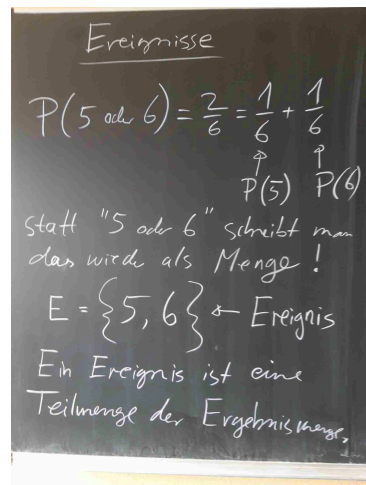 Ereignisse
P(5 oder 6) = 2/6 = 1/6 + 1/6
P(5) P(6)
statt "5 oder 6" schreibt man
das wieder als Menge!
E = {5, 6} ← Ereignis
Ein Ereignis ist eine
Teilmenge der Ergebnismenge.